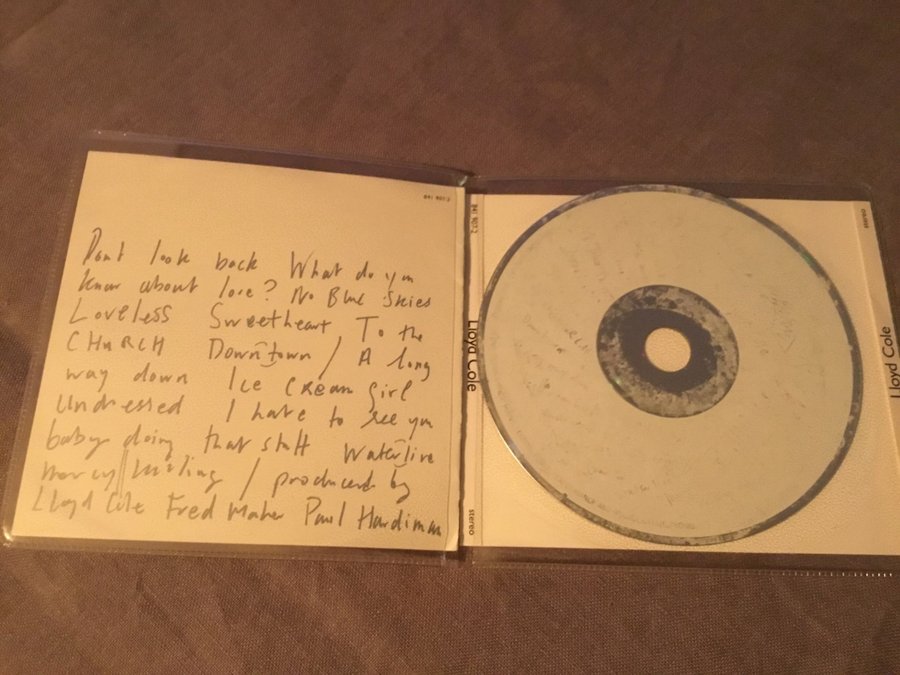 841 907-2
Dont look back What do you
know about love? No Blue Skies
Loveless Sweetheart To the
CHURCH Downtown / A long
way down Ice Cream Girl
Undressed I hate to see you
baby doing that stuff Waterline
mercy killing / produced by
Lloyd Cole Fred Maher Paul Hardiman
841 907-2
Lloyd Cole
stereo
Lloyd Cole